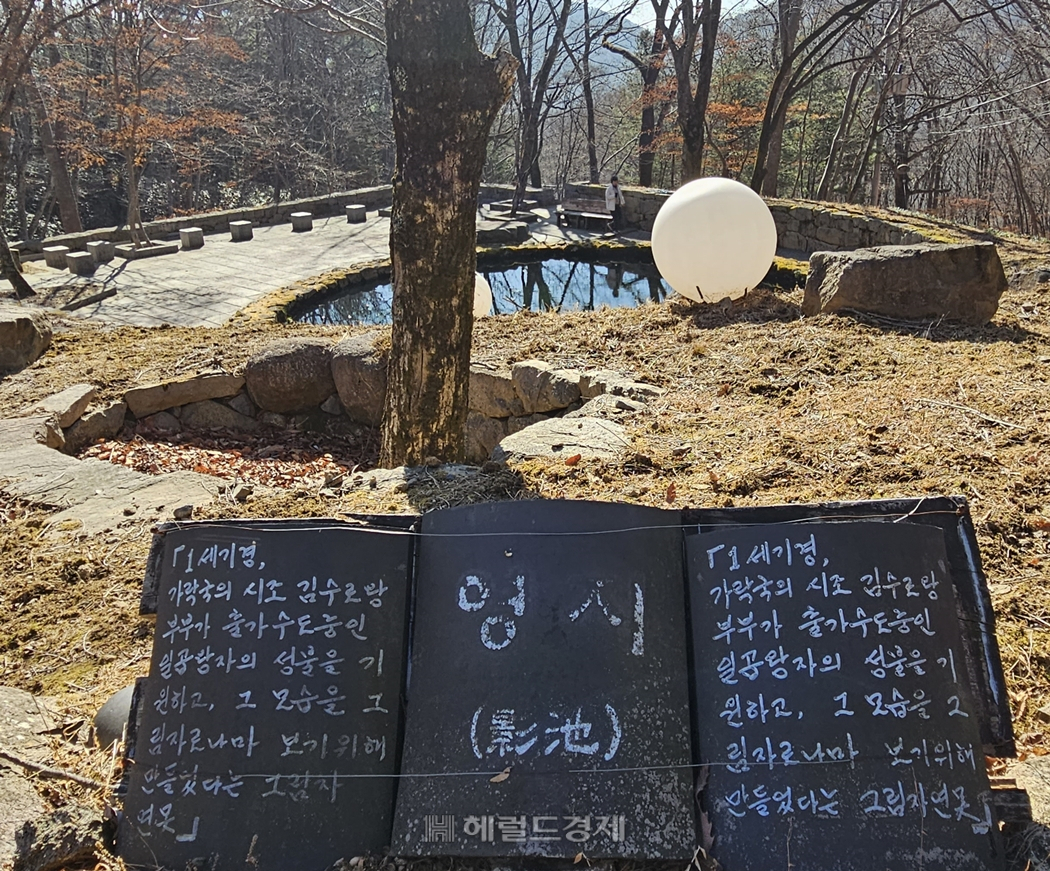 「1세기경,
가락국의 시조 김수로왕
부부가 출가수도승인
일곱왕자의 성불을 기
원하고, 그 모습을 그
림자로나마 보기위해
만들었다는 그림자
연못」
영지
(影池)
「1세기경,
가락국의 시조 김수로왕
부부가 출가수도중인
일곱왕자의 성불을 기
원하고, 그 모습을 그
림자로나마 보기위해
만들었다는 그림자연못」
헤럴드경제